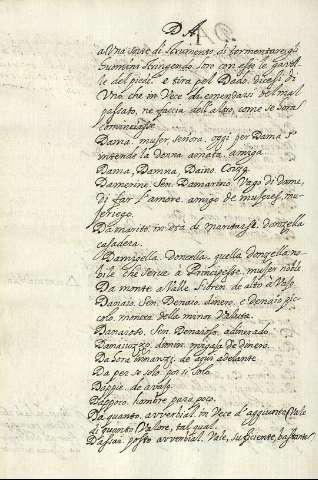 DA
a una sorte di strumento di tormentare gli
huomini stringendo loro con esso le
lle de piedi, e tira pel Dado. dicesi di
Uno che in Vece di emendarsi del mal
passato, ne faccia dell'altro, come se hora
cominciasse
Dama. muger, señora. oggi per Dama s'
intende la donna amata, amiga
Dama, Damna, Daino
Damerino. Sen. Damarino. Vago di dame,
di far l'amore. amigo de mugeres, mu-
geriego.
Da marito. in età di maritarsi. donzella
casadera.
Damigella. doncella. quella donzella no-
bile che serve à Principesse. muger noble
Da monte a Valle. di alto a
Danaio. Sen. Denaio. dinero. e Denaio pic-
colo, moneta della minor Valuta.
Danaroso. Sen. adinerado
Danaiuzzo. dimin. migaja de dinero.
Da hora innanzi. de aqui adelante
Da per se solo. por si solo
Dappie. de
Dappoco. hombre para poco.
Da quanto. avverbial. in Vece d'aggiunto, Vale
di quanto Valore, tal qual.
D'assai. posto avverbial. Vale, sufficiente, bastante